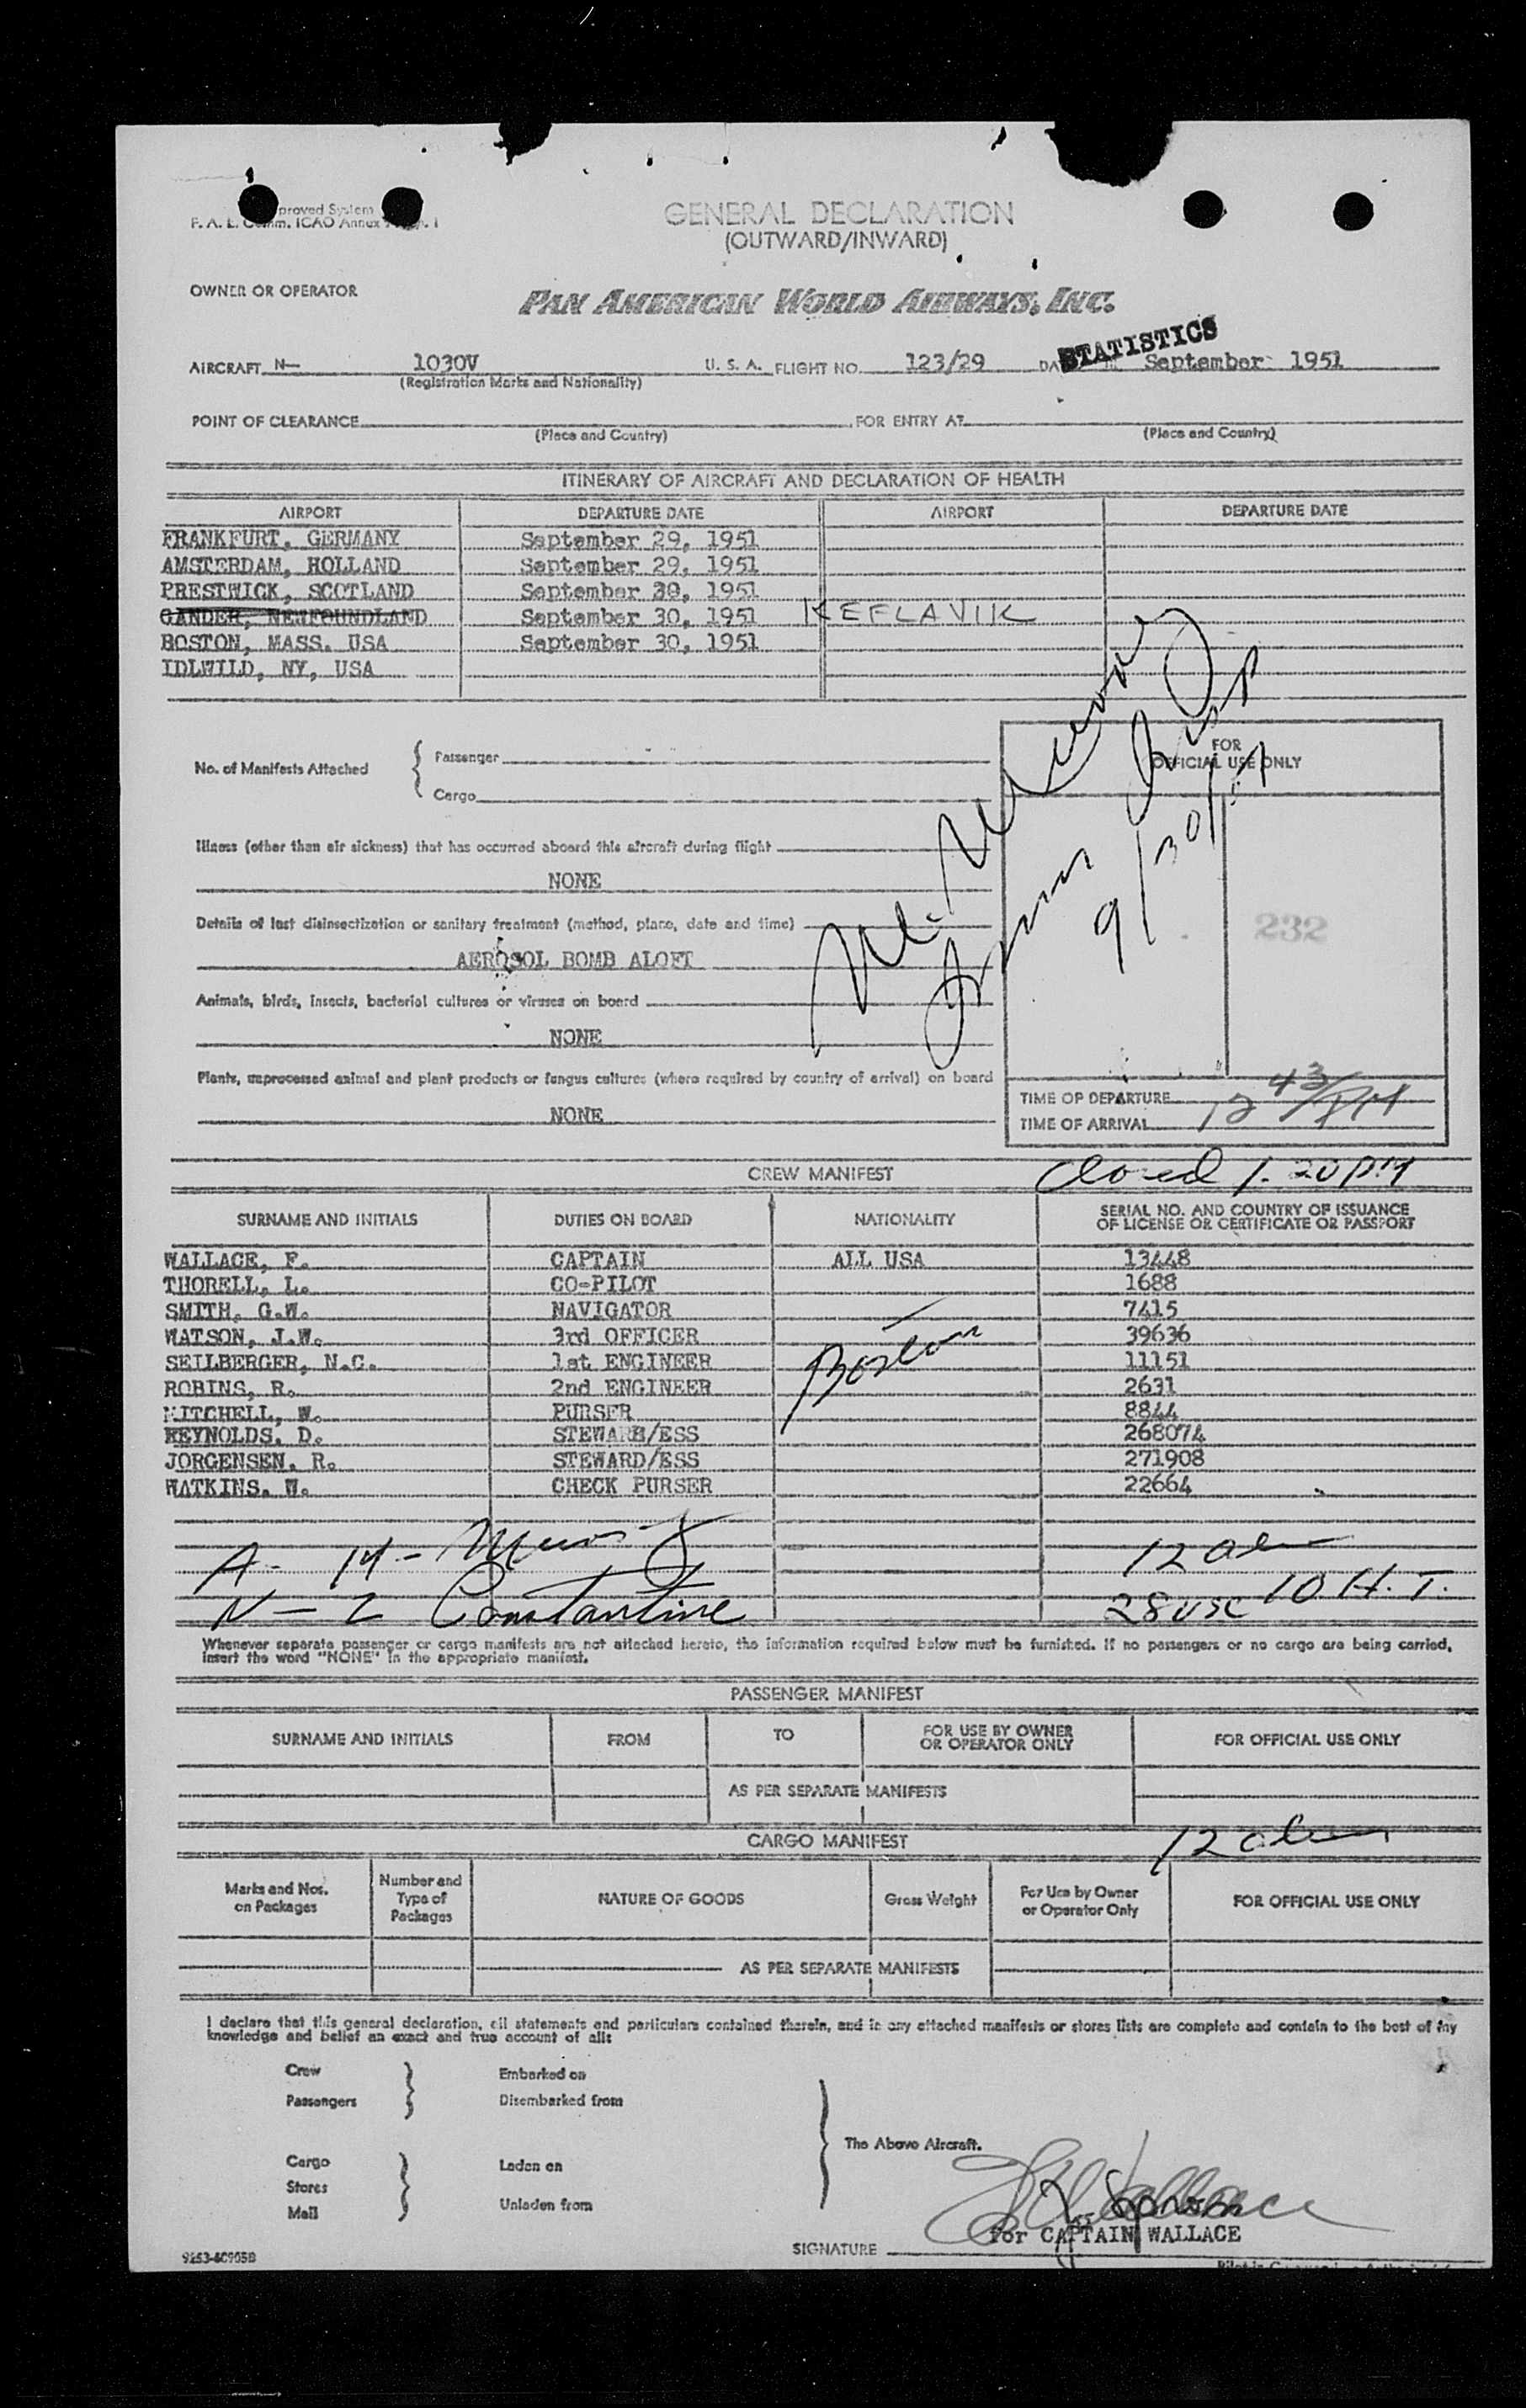 proved System
F. A. L. Comm. ICAO Annex
GENERAL DECLARATION
(OUTWARD/INWARD)
OWNER OR OPERATOR
PAN AMERICAN WORLD AIRWAYS, INC.
STATISTICS
AIRCRAFT N— 1030V U. S. A. FLIGHT NO. 123/29 September 1951
(Registration Marks and Nationality)
POINT OF CLEARANCE FOR ENTRY AT
(Place and Country) (Place and Country)
ITINERARY OF AIRCRAFT AND DECLARATION OF HEALTH
AIRPORT DEPARTURE DATE AIRPORT DEPARTURE DATE
FRANKFURT, GERMANY September 29, 1951
AMSTERDAM, HOLLAND September 29, 1951
PRESTWICK, SCOTLAND September 30, 1951
GANDER, NEWFOUNDLAND September 30, 1951 KEFLAVIK
BOSTON, MASS. USA September 30, 1951
IDLWILD, NY, USA
No. of Manifests Attached
Passenger
Cargo
FOR
OFFICIAL USE ONLY
9/30/51
232
Illness (other than air sickness) that has occurred aboard this aircraft during flight
NONE
Details of last disinsectization or sanitary treatment (method, place, date and time)
AEROSOL BOMB ALOFT
Animals, birds, insects, bacterial cultures or viruses on board
NONE
Plants, unprocessed animal and plant products or fungus cultures (where required by country of arrival) on board
NONE
TIME OF DEPARTURE
TIME OF ARRIVAL 12 43/PM
CREW MANIFEST
Closed 1.20 PM
SURNAME AND INITIALS DUTIES ON BOARD NATIONALITY SERIAL NO. AND COUNTRY OF ISSUANCE
OF LICENSE OR CERTIFICATE OR PASSPORT
WALLACE, F. CAPTAIN ALL USA 13448
THORELL, L. CO-PILOT 1688
SMITH, G.W. NAVIGATOR 7415
WATSON, J.W. 3rd OFFICER 39636
SEILBERGER, N.C. 1st ENGINEER 11151
Boston
ROBINS, R. 2nd ENGINEER 2631
MITCHELL, W. PURSER 8844
REYNOLDS, D. STEWARD/ESS 268074
JORGENSEN, R. STEWARD/ESS 271908
WATKINS, W. CHECK PURSER 22664
A- 14-
N - 2 Constantine 28 USC 10 H.T.
Whenever separate passenger or cargo manifests are not attached hereto, the information required below must be furnished. If no passengers or no cargo are being carried,
insert the word "NONE" in the appropriate manifest.
PASSENGER MANIFEST
SURNAME AND INITIALS FROM TO FOR USE BY OWNER
OR OPERATOR ONLY FOR OFFICIAL USE ONLY
AS PER SEPARATE MANIFESTS
CARGO MANIFEST
Marks and Nos.
on Packages
Number and
Type of
Packages
NATURE OF GOODS Gross Weight For Use by Owner
or Operator Only FOR OFFICIAL USE ONLY
AS PER SEPARATE MANIFESTS
I declare that this general declaration, all statements and particulars contained therein, and in any attached manifests or stores lists are complete and contain to the best of my
knowledge and belief an exact and true account of all:
Crew Embarked on
Passengers Disembarked from
The Above Aircraft.
Cargo Laden on
Stores
Mail Unladen from
For CAPTAIN WALLACE
SIGNATURE
9253-6C905B